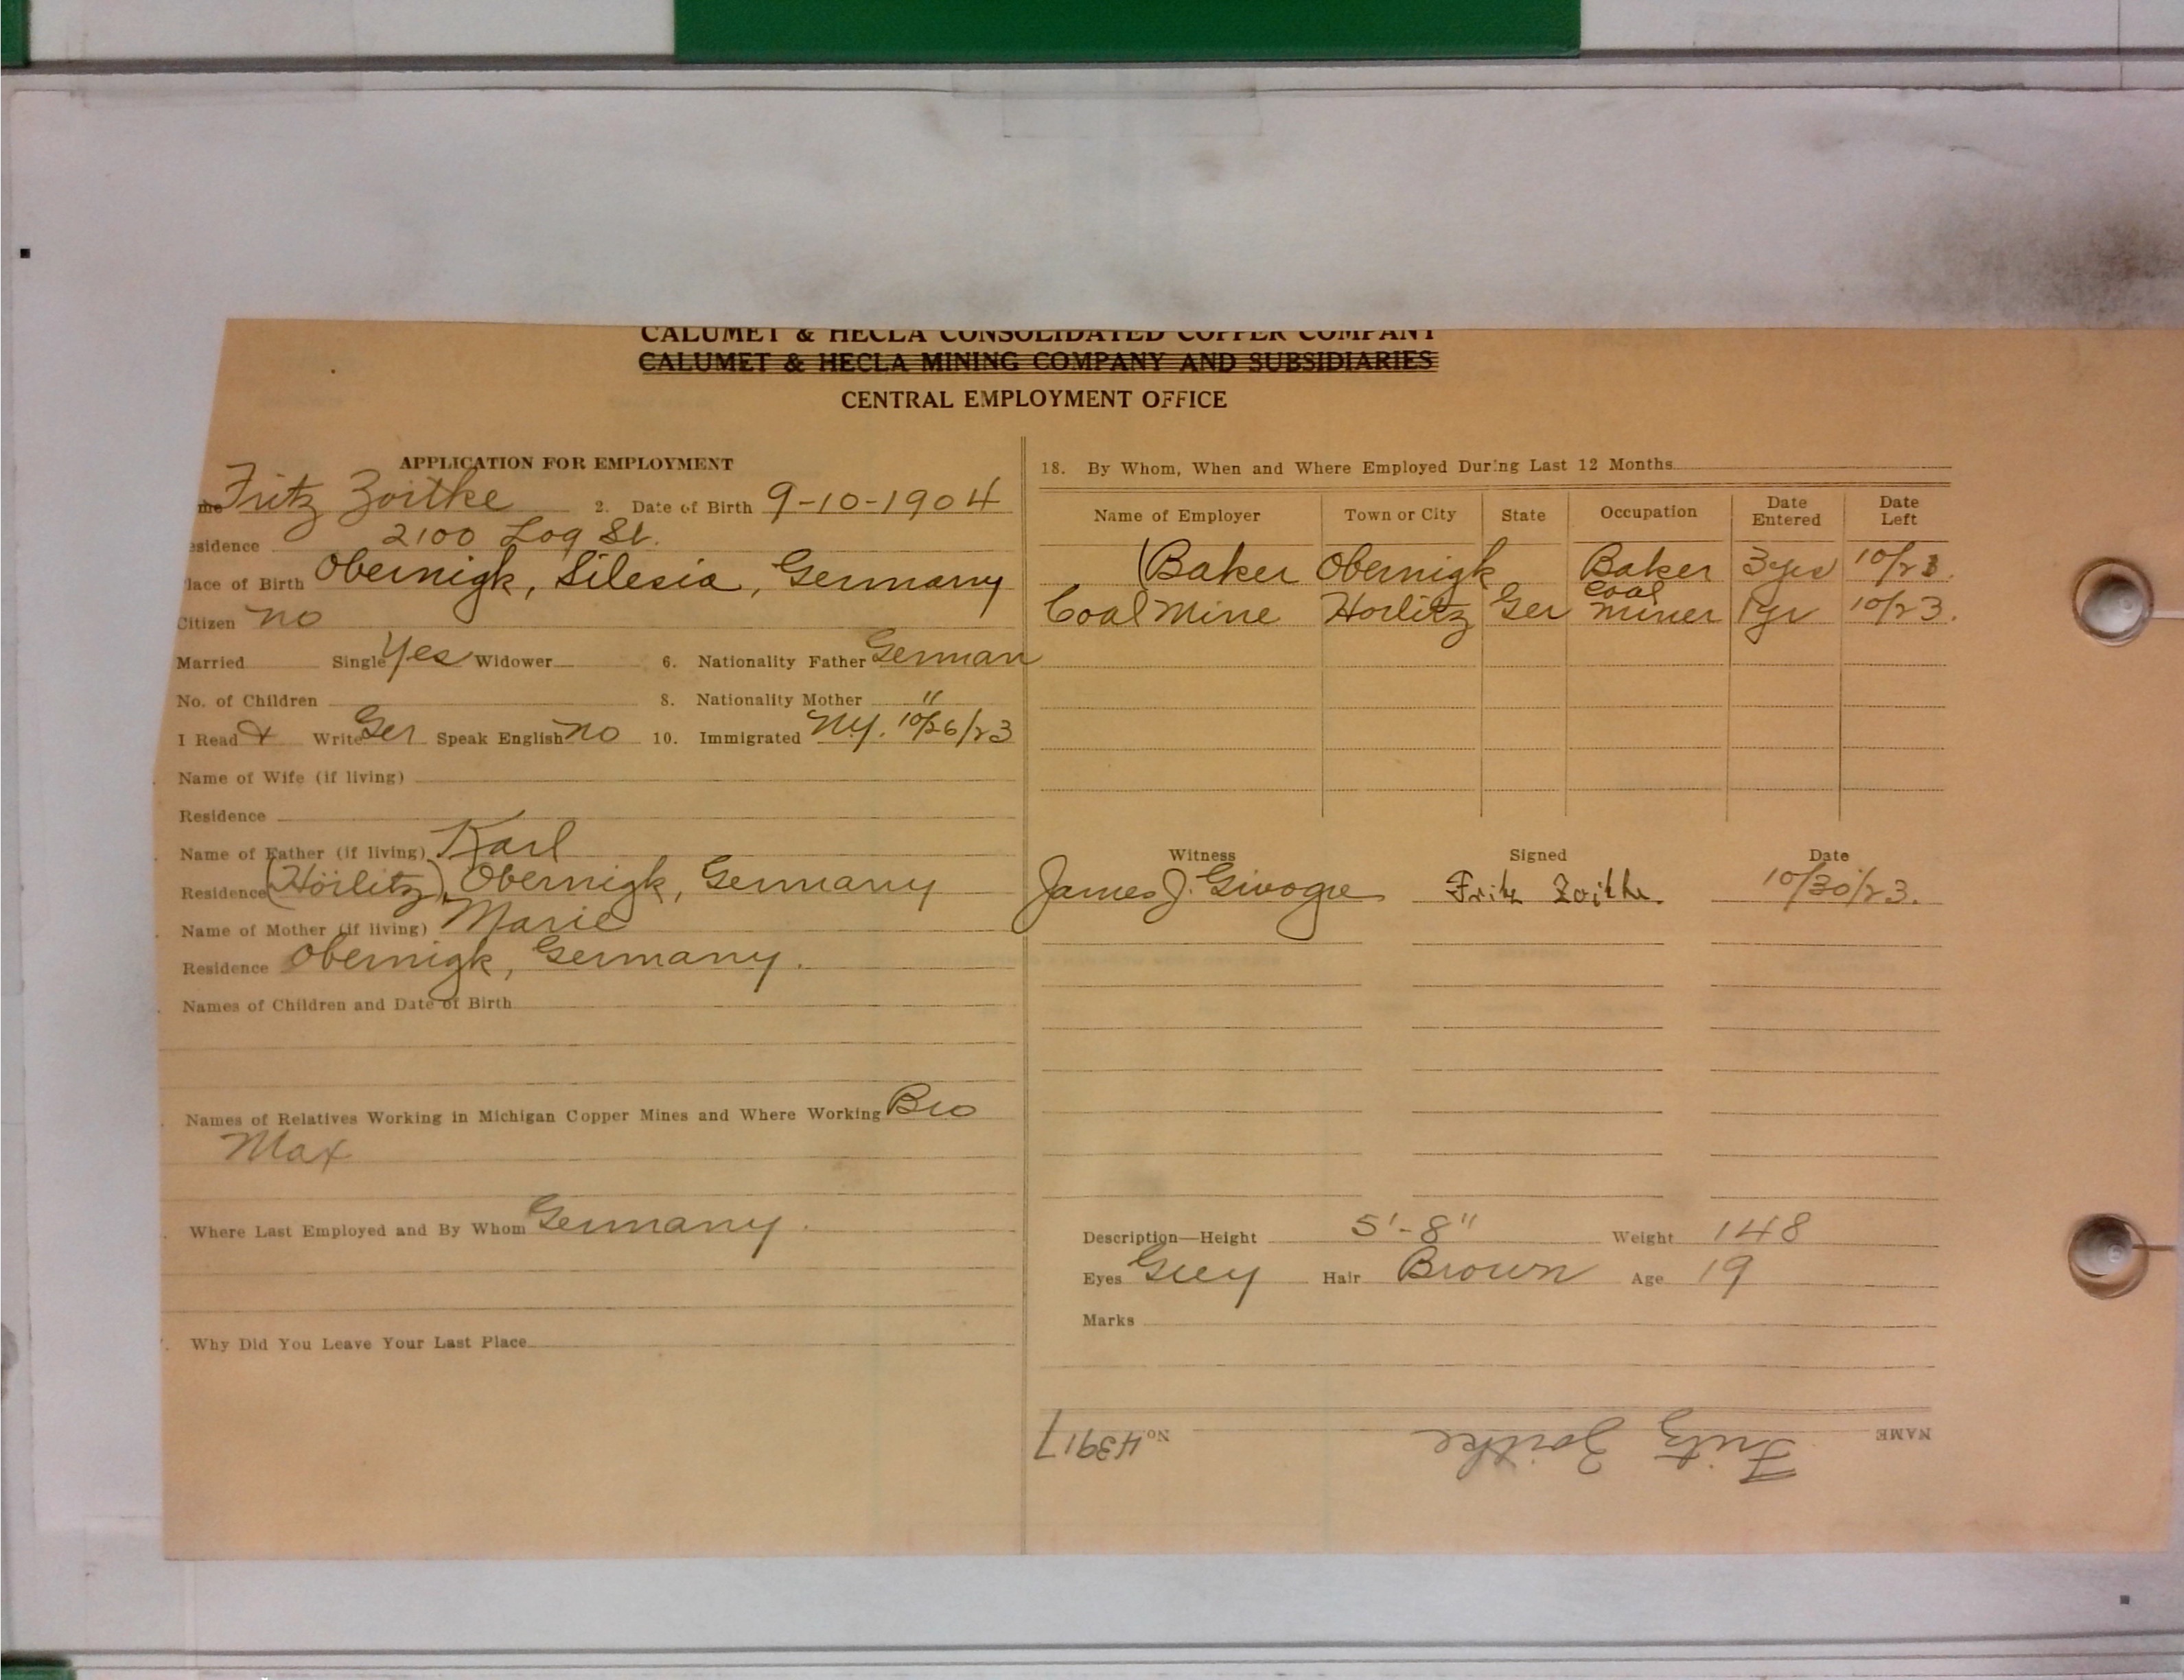 CALUMET & HECLA CONSOLIDATED COPPER COMPANY
CALUMET & HECLA MINING COMPANY AND SUBSIDIARIES
CENTRAL EMPLOYMENT OFFICE
APPLICATION FOR EMPLOYMENT
me Fritz Zoitke 2. Date of Birth 9-10-1904
esidence 2100 Log St.
lace of Birth Obernigk, Silesia, Germany
Citizen no
Married Single Yes Widower 6. Nationality Father German
No. of Children 8. Nationality Mother "
I Read & Write Ger Speak English no 10. Immigrated N.Y. 10/26/23
Name of Wife (if living)
Residence
Name of Father (if living) Karl
Residence (Hörlitz), Obernigk, Germany
Name of Mother (if living) Marie
Residence Obernigk, Germany.
Names of Children and Date of Birth
Names of Relatives Working in Michigan Copper Mines and Where Working Bro
Max
Where Last Employed and By Whom Germany.
Why Did You Leave Your Last Place
18. By Whom, When and Where Employed During Last 12 Months
Name of Employer Town or City State Occupation Date Entered Date Left
(Baker Obernigk Baker 3 yrs 10/23.
Coal Mine Horlitz Ger Coal miner 1 yr 10/23.
Witness Signed Date
James J. Givogre Fritz Zoitke. 10/30/23.
Description—Height 5'-8" Weight 148
Eyes Grey Hair Brown Age 19
Marks
NAME Fritz Zoitke No. 43917